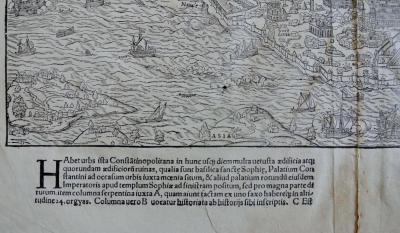 ASIA
HAbet urbs ista Constãtinopolitana in hunc usq; diem multa vetusta ædificia atq;
quorundam ædificiorũ ruinas, qualia sunt basilica sanctę Sophię, Palatium Con
stantini ad occasum urbis iuxta mœnia situm, & aliud palatium rotundũ eiusdem
Imperatoris apud templum Sophiæ ad sinistram positum, sed pro magna parte di
rutum. item columna serpentina iuxta A, quam aiunt factam ex uno saxo habereq; in alti
tudine 24. orgyas. Columna uero B uocatur historiata ab historijs sibi inscriptis. C Est